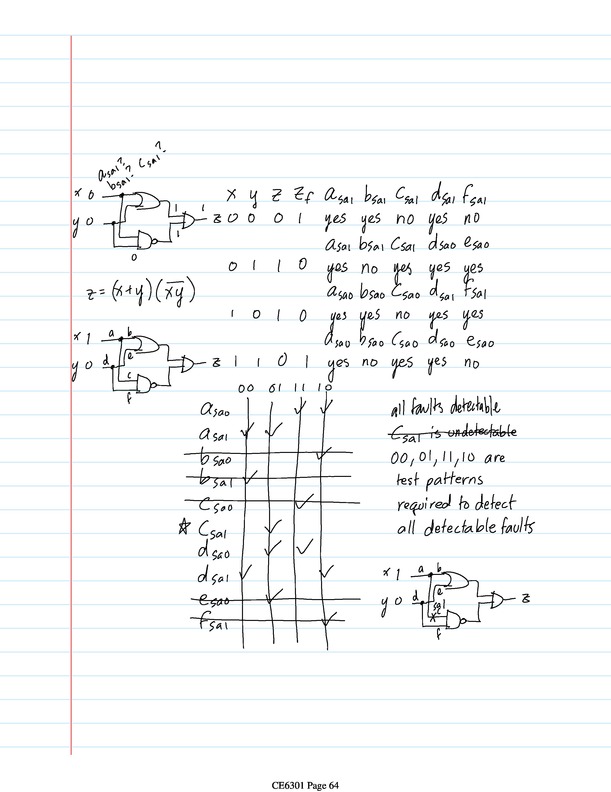 a_sa1? b_sa1? c_sa1?
x 0
y 0
1
1
1
0
z
x y z z_f a_sa1 b_sa1 c_sa1 d_sa1 f_sa1
0 0 0 1 yes yes no yes no
a_sa1 b_sa1 c_sa1 d_sa0 e_sa0
0 1 1 0 yes no yes yes yes
z = (x+y)(x̅y̅)
a_sa0 b_sa0 c_sa0 d_sa1 f_sa1
1 0 1 0 yes yes no yes yes
a_sa0 b_sa0 c_sa0 d_sa0 e_sa0
1 1 0 1 yes no yes yes no
x 1 a b
y 0 d e
c
f
z
00 01 11 10
a_sa0 ✓ ✓
a_sa1 ✓ ✓
b_sa0 ✓
b_sa1 ✓
c_sa0 ✓
☆ c_sa1 ✓
d_sa0 ✓ ✓
d_sa1 ✓ ✓
e_sa0 ✓
f_sa1 ✓
all faults detectable
c_sa1 is undetectable
00, 01, 11, 10 are
test patterns
required to detect
all detectable faults
x 1 a b
y 0 d e
sa1
x c
f
z
CE6301 Page 64